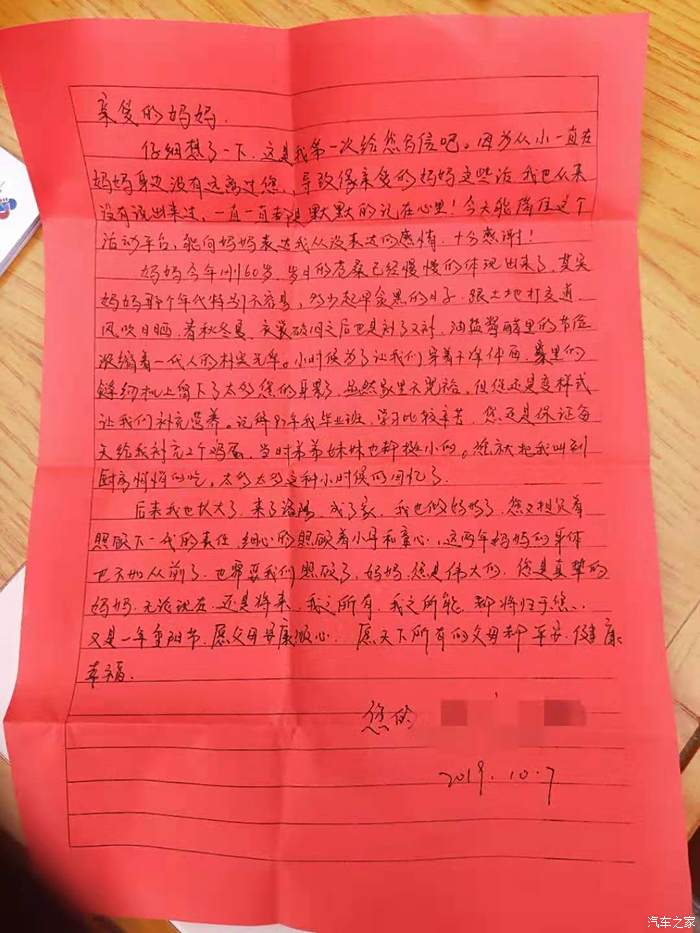 亲爱的妈妈.
仔细想了一下,这是我第一次给您写信吧。因为从小一直在
妈妈身边没有远离过您,导致像亲爱的妈妈这些话 我也从来
没有说出来过,一直一直都是默默的说在心里!今天能借住这个
活动平台,能向妈妈表达我从没表达的感情,十分感谢!
妈妈今年刚60岁,岁月的苍桑已经慢慢的体现出来了,其实
妈妈那个年代特别不容易,多少起早贪黑的日子,跟土地打交道
风吹日晒,春秋冬夏,衣裳破旧之后也是补了又补,油盐酱醋里的节俭
浓缩着一代人的朴实无华。小时候为了让我们穿着干净体面,家里的
缝纫机上留下了太多您的身影了,虽然家里不宽裕,但您还是变样式
让我们补充营养。记得97年我毕业班,学习比较辛苦,您还是保证每
天给我补充2个鸡蛋,当时弟弟妹妹也都挺小的。您就把我叫到
厨房悄悄的吃,太多太多这种小时候的回忆了
后来我也长大了,来了洛阳,成了家,我也做妈妈了,您又担负着
照顾下一代的责任,细心的照顾着小丹和童心,这两年妈妈的身体
也不如从前了,也需要我们照顾了,妈妈,您是伟大的,您是真挚的
妈妈,无论现在,还是将来,我之所有,我之所能,都将归于您.
又是一年重阳节,愿父母安康顺心,愿天下所有的父母都平安,健康
幸福.
您的
2019.10.7
汽车之家